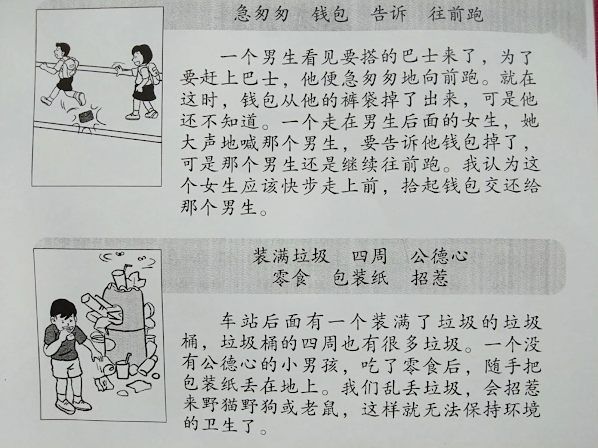 急匆匆 钱包 告诉 往前跑
一个男生看见要搭的巴士来了，为了
要赶上巴士，他便急匆匆地向前跑。就在
这时，钱包从他的裤袋掉了出来，可是他
还不知道。一个走在男生后面的女生，她
大声地喊那个男生，要告诉他钱包掉了，
可是那个男生还是继续往前跑。我认为这
个女生应该快步走上前，拾起钱包交还给
那个男生。
装满垃圾 四周 公德心
零食 包装纸 招惹
车站后面有一个装满了垃圾的垃圾
桶，垃圾桶的四周也有很多垃圾。一个没
有公德心的小男孩，吃了零食后，随手把
包装纸丢在地上。我们乱丢垃圾，会招惹
来野猫野狗或老鼠，这样就无法保持环境
的卫生了。